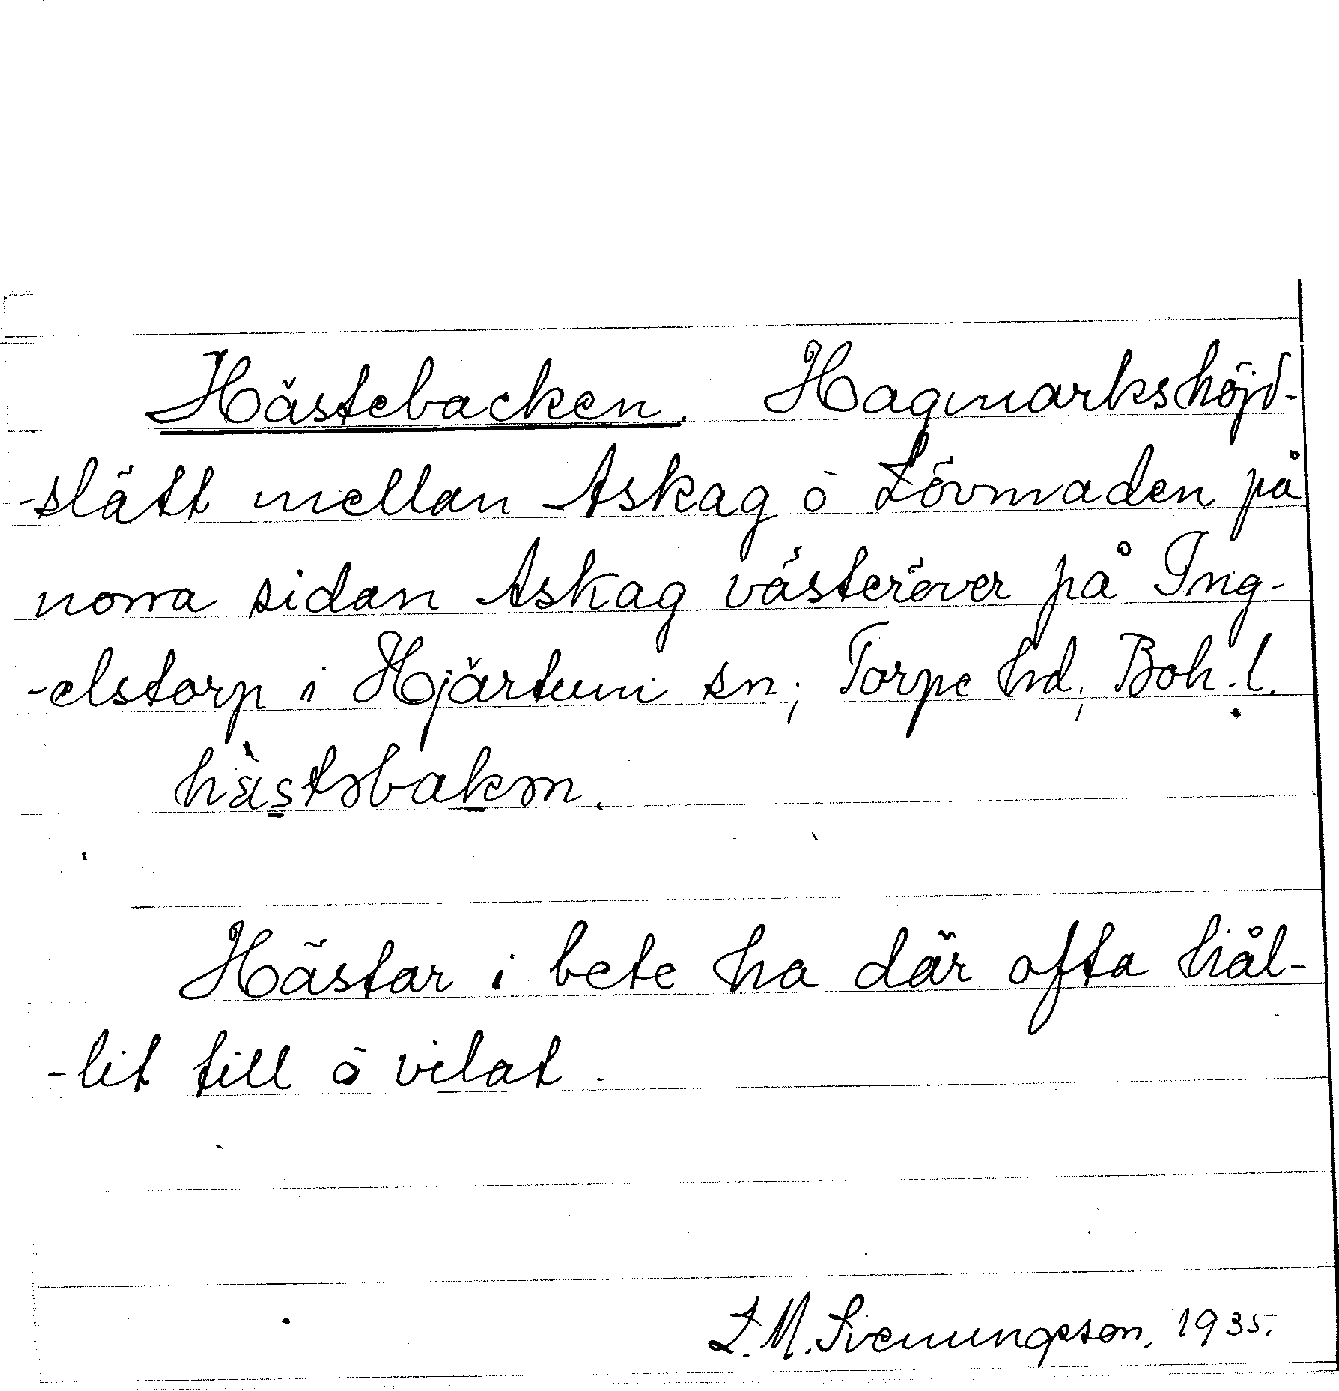 Hästebacken. Hagmarkshöjd-
-slätt mellan Askag ö Lövmaden på
norra sidan Askag västeröver på Ing-
-elstorp i Hjärtum sn; Torpe hd, Boh. l.
hàstəbakən.
Hästar i bete ha där ofta hål-
-lit till ö vilat.
L. M. Svenungson. 1935.